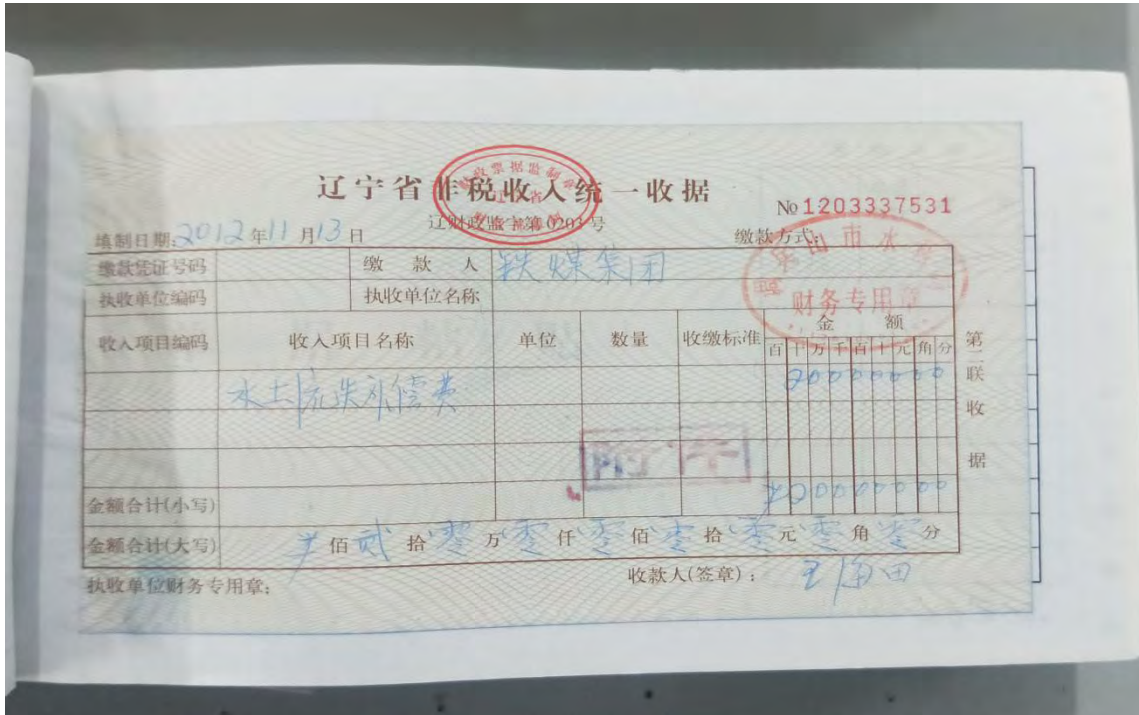 辽宁省非税收入统一收据
辽财政监字第0203号
No 1203337531
填制日期:2012年11月13日
缴款方式:
缴款凭证号码 缴款人 铁煤集团
执收单位编码 执收单位名称
财务专用章
收入项目编码 收入项目名称 单位 数量 收缴标准 金额
百十万千百十元角分
水土流失补偿费 20000000
金额合计(小写) ¥20000000
金额合计(大写) 佰贰拾零万零仟零佰零拾零元零角零分
执收单位财务专用章: 收款人(签章):
第二联收据